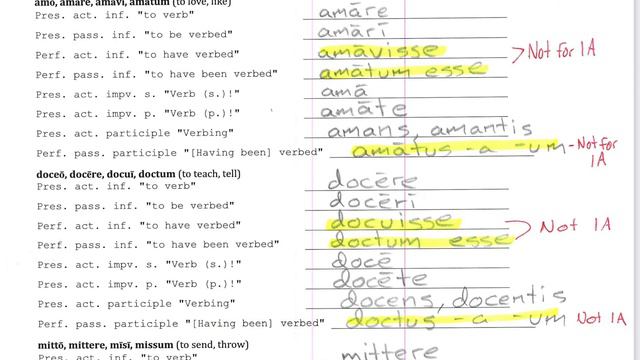 amō, amāre, amāvī, amātum (to love, like)
Pres. act. inf. "to verb" amāre
Pres. pass. inf. "to be verbed" amārī
Perf. act. inf. "to have verbed" amāvisse
Not for 1A
Perf. pass. inf. "to have been verbed" amātum esse
Pres. act. impv. s. "Verb (s.)!" amā
Pres. act. impv. p. "Verb (p.)!" amāte
Pres. act. participle "Verbing" amans, amantis
Perf. pass. participle "[Having been] verbed" amātus -a -um - Not for 1A
doceō, docēre, docuī, doctum (to teach, tell)
Pres. act. inf. "to verb" docēre
Pres. pass. inf. "to be verbed" docērī
Perf. act. inf. "to have verbed" docuisse
Not 1A
Perf. pass. inf. "to have been verbed" doctum esse
Pres. act. impv. s. "Verb (s.)!" docē
Pres. act. impv. p. "Verb (p.)!" docēte
Pres. act. participle "Verbing" docens, docentis
Perf. pass. participle "[Having been] verbed" doctus -a -um Not 1A
mittō, mittere, mīsī, missum (to send, throw)
Pres. act. inf. "to verb" mittere